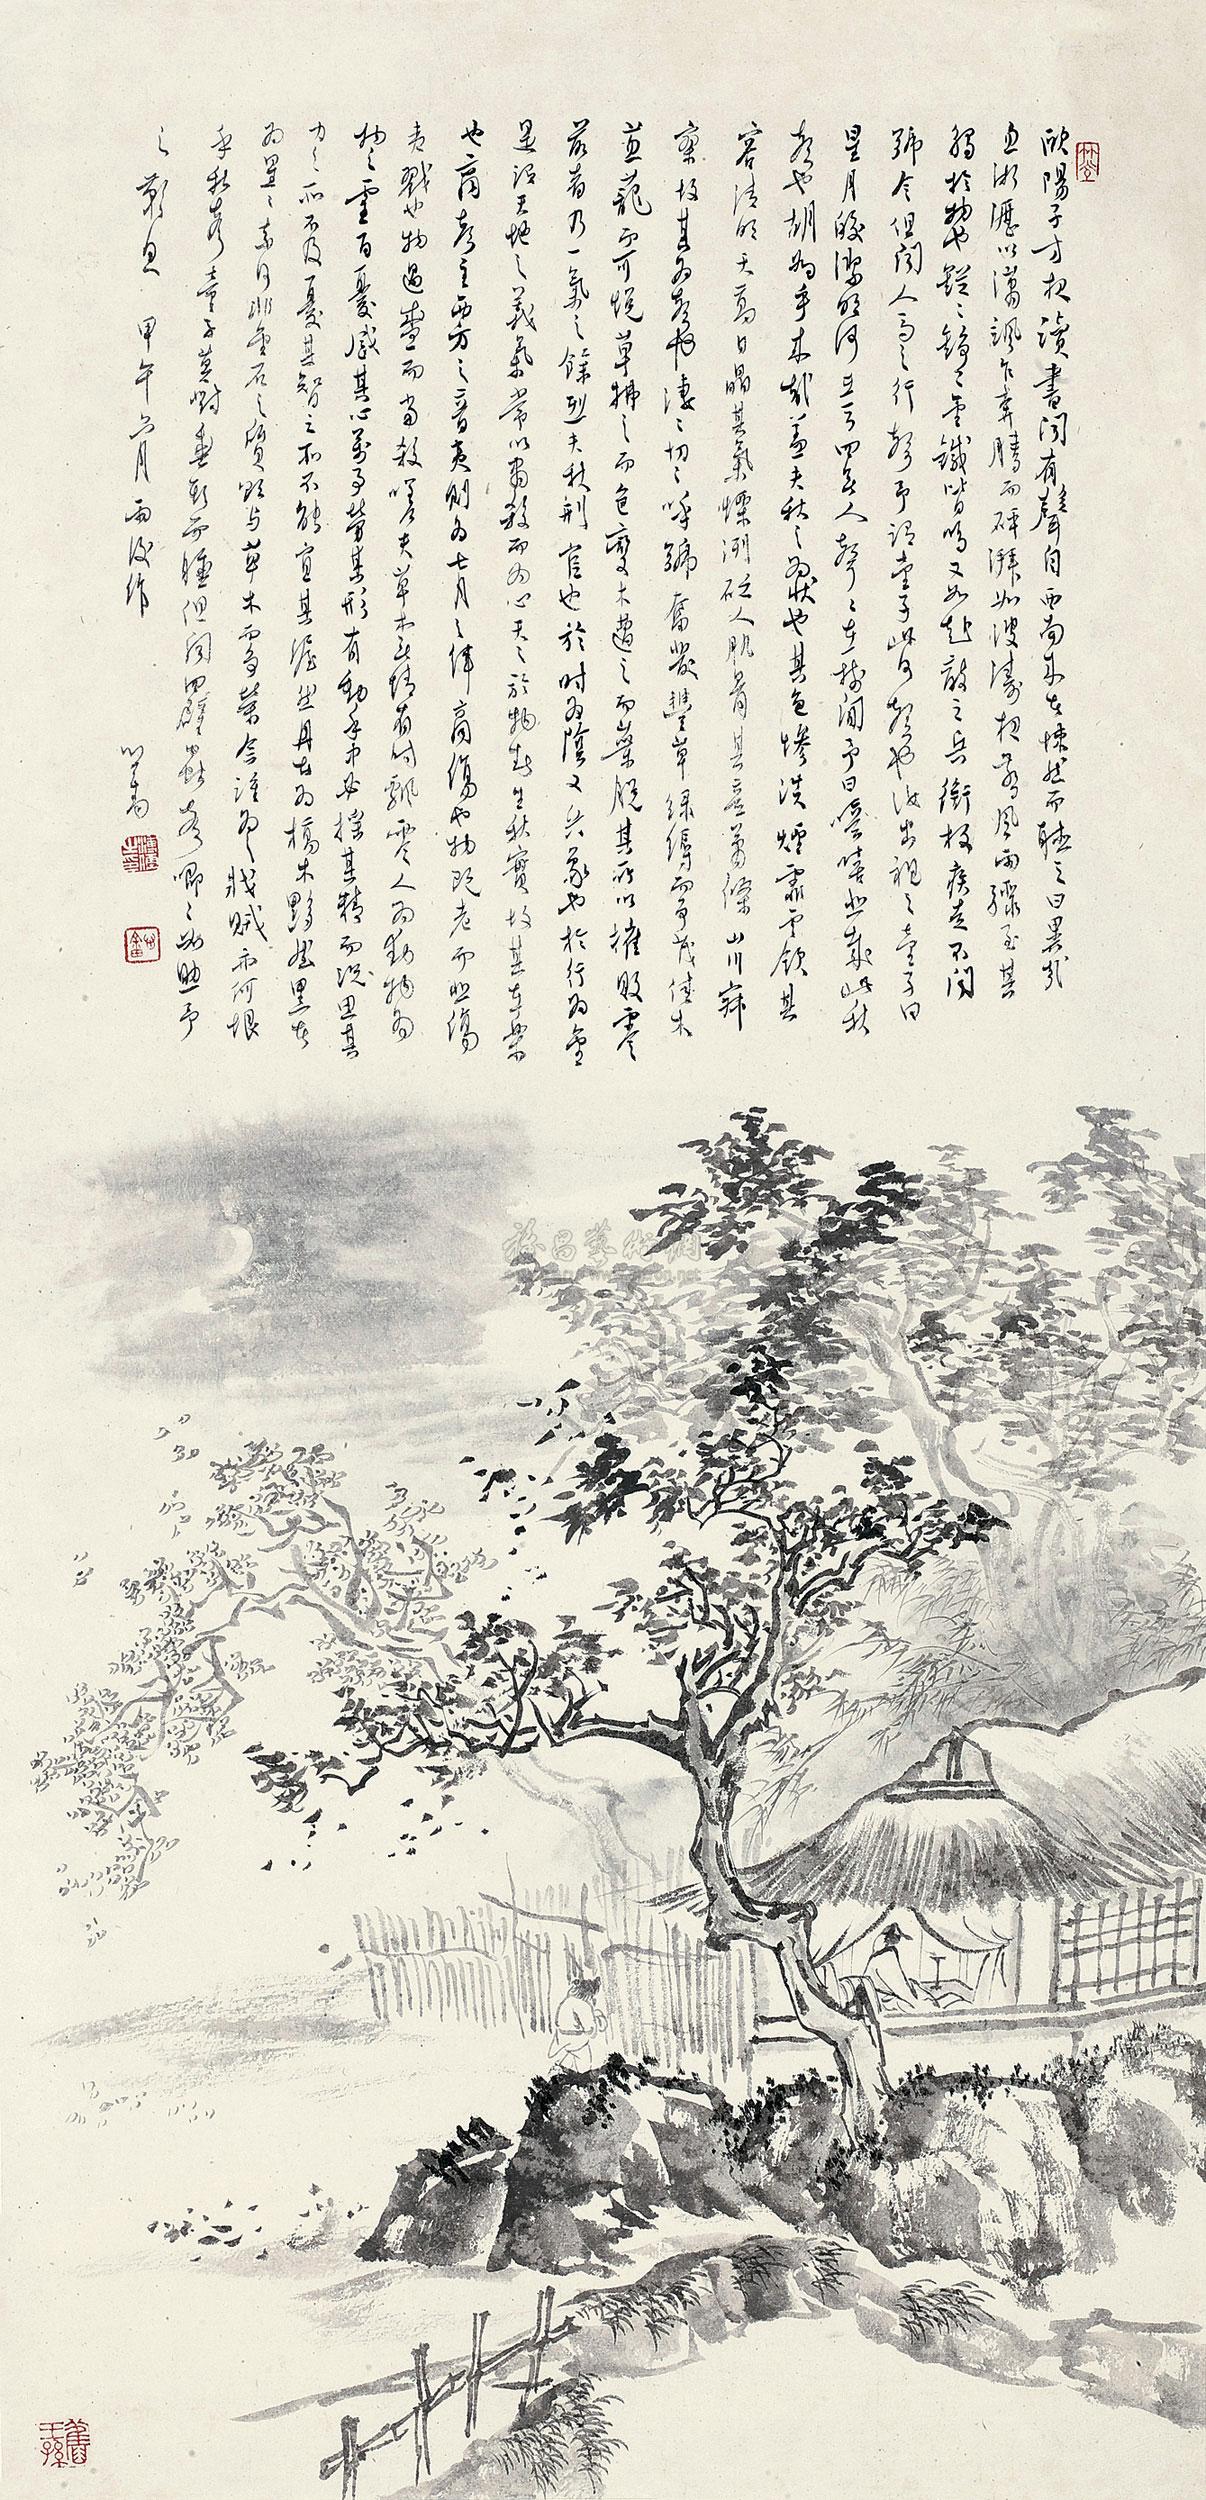 歐陽子方夜讀書聞有聲自西南來者悚然而聽之曰異哉
初淅瀝以瀟颯乍奔騰而砰湃如波濤夜驚風雨驟至其
觸於物也鏦鏦錚錚金鐵皆鳴又如赴敵之兵銜枚疾走不聞
號令但聞人馬之行聲予謂童子此何聲也汝出視之童子曰
星月皎潔明河在天四無人聲聲在樹間予曰噫嘻悲哉此秋
聲也胡為乎來哉蓋夫秋之為狀也其色慘淡煙霏雲斂其
容清明天高日晶其氣慄冽砭人肌骨其意蕭條山川寂
寥故其為聲也淒淒切切呼號奮發豐草綠縟而爭茂佳木
蔥蘢而可悅草拂之而色變木遭之而葉脫其所以摧敗零
落者乃一氣之餘烈夫秋刑官也於時為陰又兵象也於行為金
是謂天地之義氣常以肅殺而為心天之於物春生秋實故其在樂
也商聲主西方之音夷則為七月之律商傷也物既老而悲傷
夷戮也物過盛而當殺嗟夫草木無情有時飄零人為動物為
物之靈百憂感其心萬事勞其形有動乎中必搖其精而況思其
力之所不及憂其智之所不能宜其渥然丹者為槁木黟然黑者
為星星奈何非金石之質欲與草木而爭榮念誰為之戕賊亦何恨
乎秋聲童子莫對垂頭而睡但聞四壁蟲聲唧唧如助予
之歎息 甲午六月雨後作
心畬
舊王孫